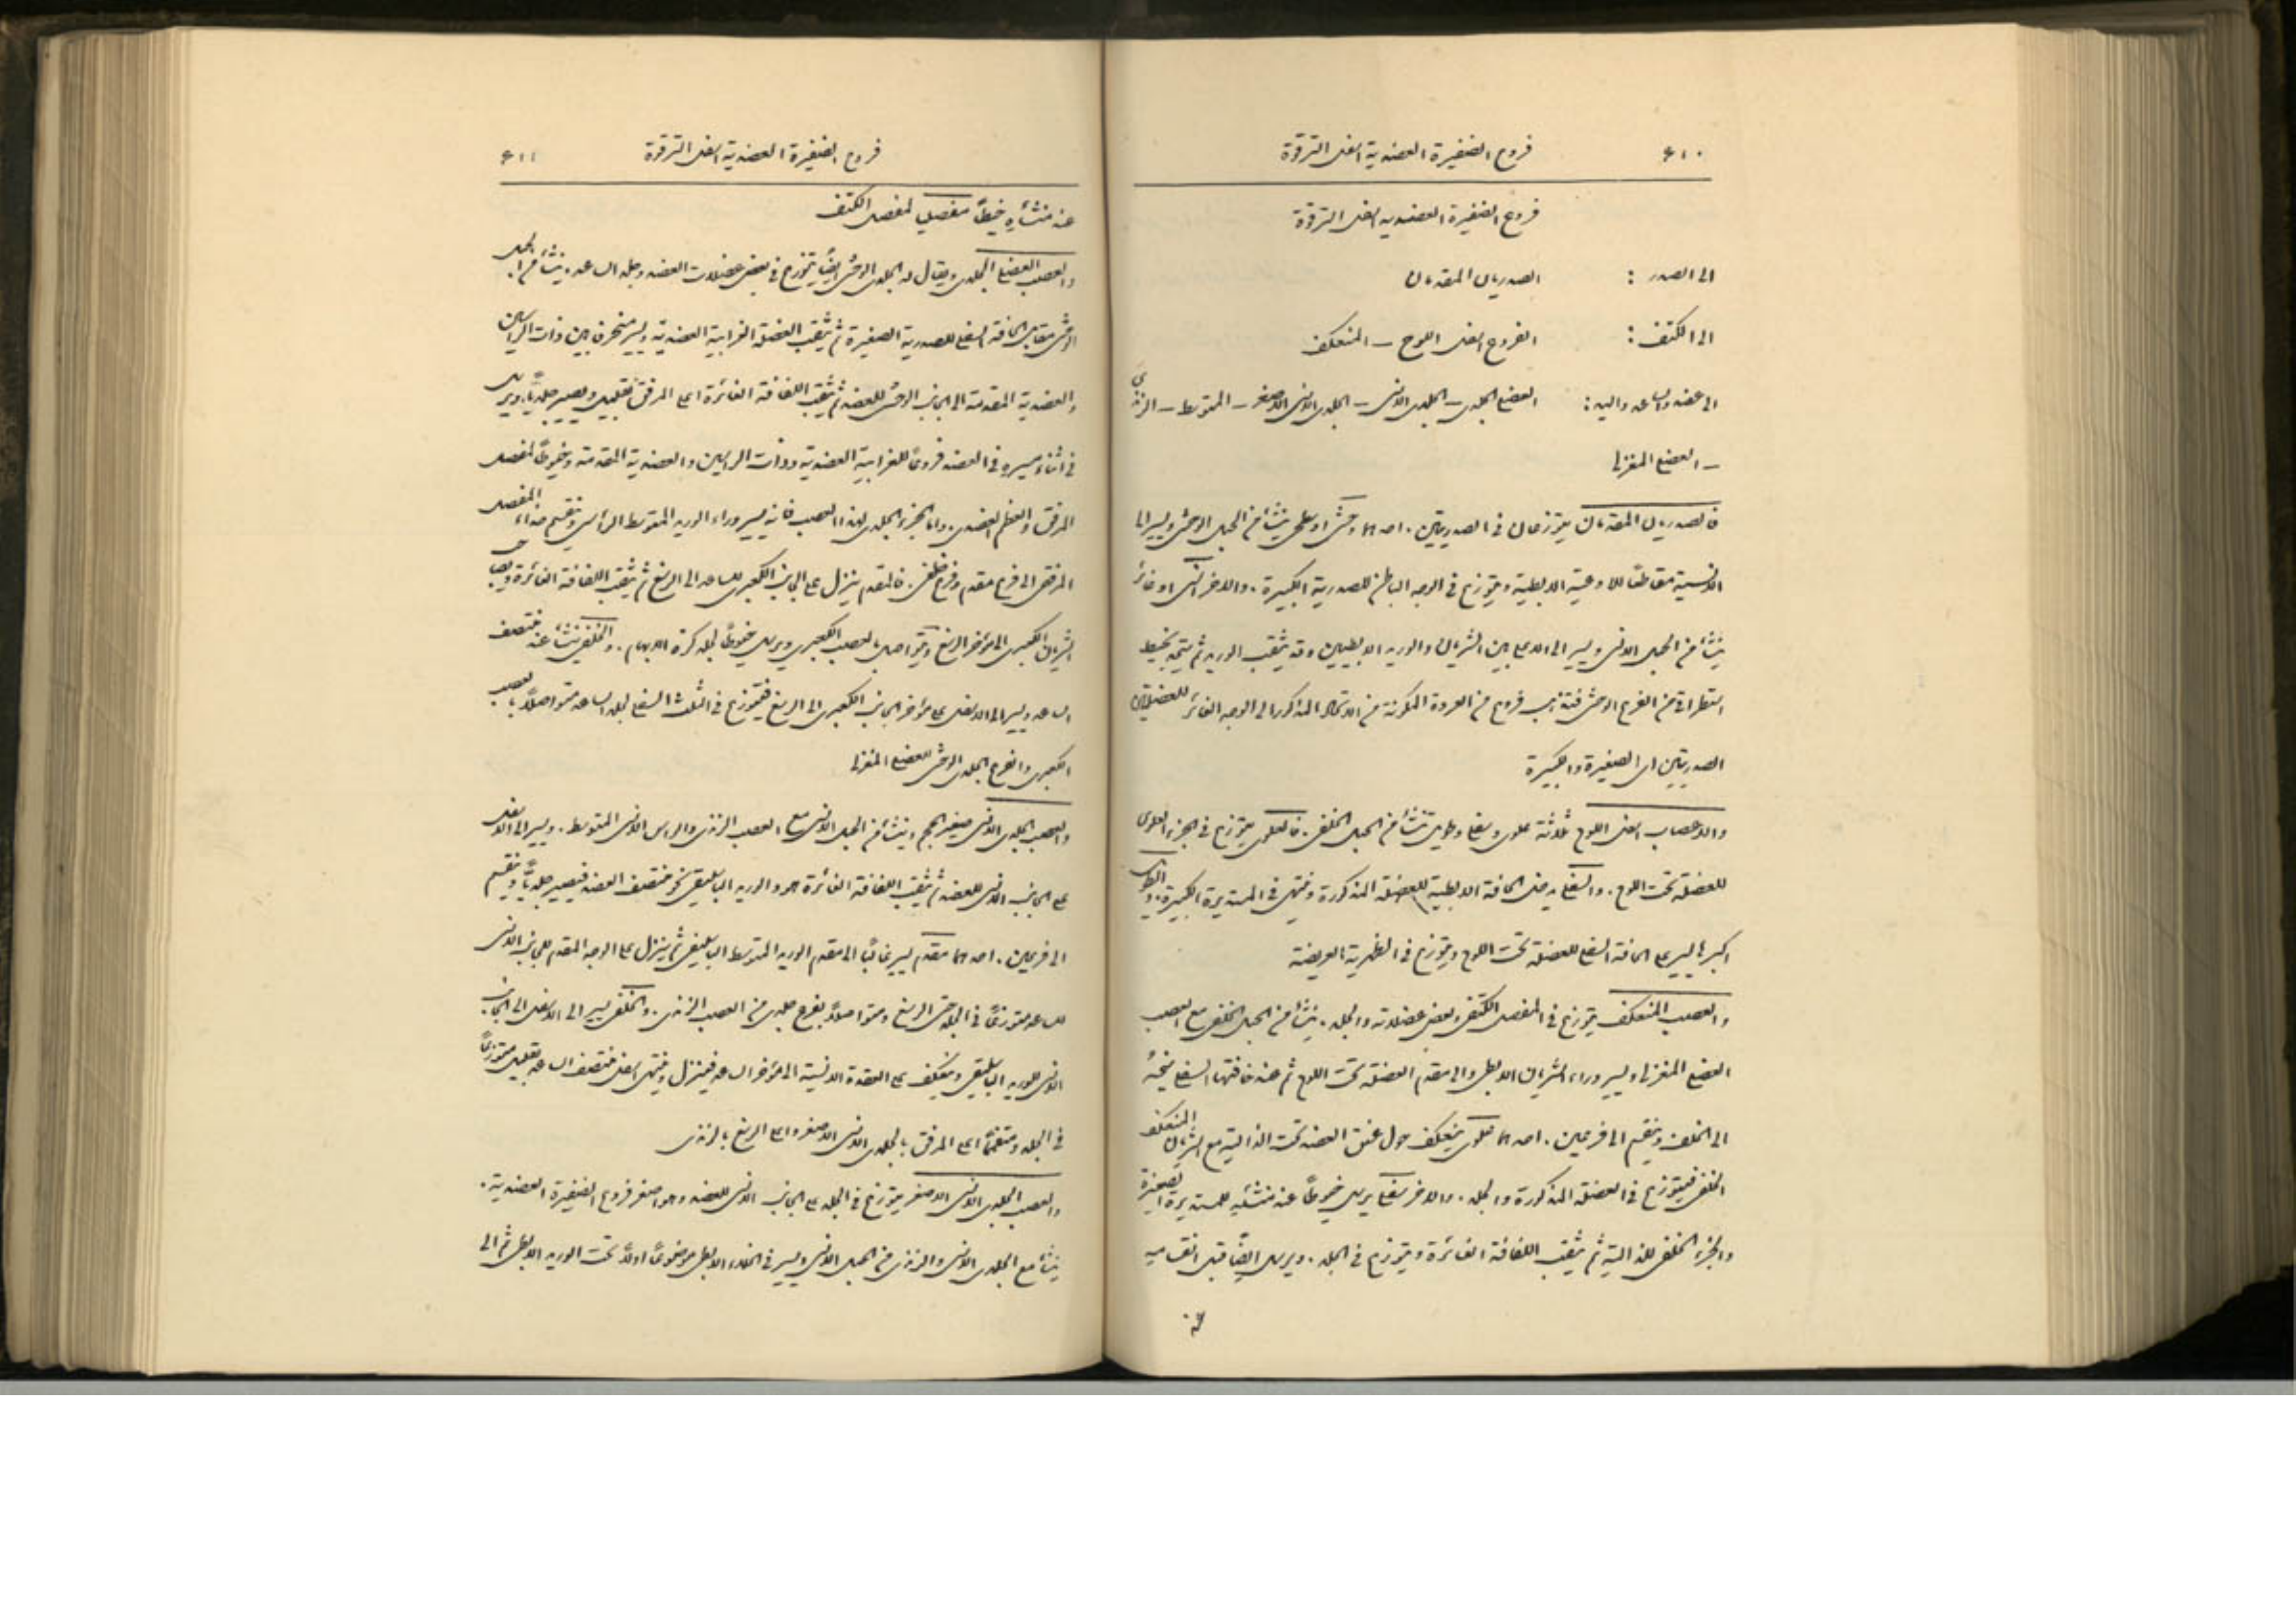 ٤١٠ فروع الضفيرة العضدية اسفل الترقوة
فروع الضفيرة العضديه اسفل الترقوة
الى الصدر : الصدريان المقدمان
الى الكتف : الفروع اسفل اللوح – المنعكف
الى عضد والساعد واليد : العضلي الجلدي – الجلدي الانسي – الجلدي الانسي الاصغر – المتوسط – الزندي
– العضلي المغزلي
فالصدريان المقدمان يتوزعان في الصدريتين . احدهما وحشي او سطحي ينشأ من الحبل الوحشي ويسير الى
الانسية مقاطعًا للاوعية الابطية ويتوزع في الوجه الباطن للصدرية الكبيرة . والاخر انسي او غائر
ينشأ من الحبل الانسي ويسير الى الاسفل بين الشريان والوريد الابطيين وقد يثقب الوريد ثم يتحد بخيط
استطراقي من الفرع الوحشي فتذهب فروع من العروة المكونة من الاتحاد المذكور الى الوجه الغائر للعضلتين
الصدريتين اي الصغيرة والكبيرة
والاعصاب اسفل اللوح ثلاثة علوي وسفلي وطويل تنشأ من الحبل الخلفي . فالعلوي يتوزع في الجزء العلوي
للعضلة تحت اللوح . والسفلي يدخل الحافة الابطية للعضلة المذكورة وينتهي في المستديرة الكبيرة . والطويل
اكبرها يسير على الحافة السفلى للعضلة تحت اللوح ويتوزع في الظهرية العريضة
والعصب المنعكف يتوزع في المفصل الكتفي وبعض عضلاته والجلد . ينشأ من الحبل الخلفي مع العصب
العضلي المغزلي ويسير وراء الشريان الابطي والى مقدم العضلة تحت اللوح ثم عند حافتها السفلى يتجه
الى الخلف وينقسم الى فرعين . احدهما علوي ينعكف حول عنق العضد تحت الدالية مع الشريان المنعكف
الخلفي فيتوزع في العضلة المذكورة والجلد . والاخر سفلي يرسل خيوطًا عند منشئه للمستديرة الصغيرة
والجزء الخلفي للدالية ثم يثقب اللفافة الغائرة ويتوزع في الجلد . ويرسل ايضًا قبل انقسامه
فروع الضفيرة العضدية اسفل الترقوة ٤١١
عند منشأه خيطًا مفصليًا لمفصل الكتف
والعصب العضلي الجلدي ويقال له الجلدي الوحشي ايضًا يتوزع في بعض عضلات العضد وجلد الساعد . ينشأ من الحبل
الوحشي مقابل الحافة السفلى للصدرية الصغيرة ثم يثقب العضلة الغرابية العضدية ويسير منحرفًا بين ذات الراسين
والعضدية المقدمة الى الجانب الوحشي للعضد ثم يثقب اللفافة الغائرة اعلى المرفق بقليل ويصير جلديًا . ويرسل
في اثناء مسيره في العضد فروعًا للغرابية العضدية وذات الراسين والعضدية المقدمة وخيوطًا لمفصل
المرفق والعظم العضدي . واما الجزء الجلدي لهذا العصب فانه يسير وراء الوريد المتوسط الراسي وينقسم حذاء المفصل
المرفقي الى فرع مقدم وفرع خلفي . فالمقدم ينزل على الجانب الكعبري للساعد الى الرسغ ثم يثقب اللفافة الغائرة ويصاحب
الشريان الكعبري الى مؤخر الرسغ ويتواصل بالعصب الكعبري ويرسل خيوطًا لجلد كرة الابهام . والخلفي ينشأ عند منتصف
الساعد ويسير الى الاسفل على مؤخر الجانب الكعبري الى الرسغ فيتوزع في الثلث السفلي لجلد الساعد متواصلاً بالعصب
الكعبري والفرع الجلدي الوحشي للعضلي المغزلي
والعصب الجلدي الانسي صغير الحجم وينشأ من الحبل الانسي مع العصب الزندي والراس الانسي للمتوسط . ويسير الى الاسفل
على الجانب الانسي للعضد ثم يثقب اللفافة الغائرة هو والوريد الباسليقي نحو منتصف العضد فيصير جلديًا وينقسم
الى فرعين . احدهما مقدم يسير غالبًا الى مقدم الوريد المتوسط الباسليقي ثم ينزل على الوجه المقدم للجانب الانسي
للساعد متوزعًا في الجلد حتى الرسغ ومتواصلاً بفرع جلدي من العصب الزندي . والخلفي يسير الى الاسفل الى الجانب
الانسي للوريد الباسليقي وينعكف على العقدة الانسية الى مؤخر الساعد فينزل وينتهي اسفل منتصف الساعد بقليل متوزعًا
في الجلد ومتفممًا اعلى المرفق بالجلدي الانسي الاصغر واعلى الرسغ بالزندي
والعصب الجلدي الانسي الاصغر يتوزع في الجلد على الجانب الانسي للعضد وهو اصغر فروع الضفيرة العضدية .
ينشأ مع الجلدي الانسي والزندي من الحبل الانسي ويسير في الخلاء الابطي موضوعًا اولاً تحت الوريد الابطي ثم الى